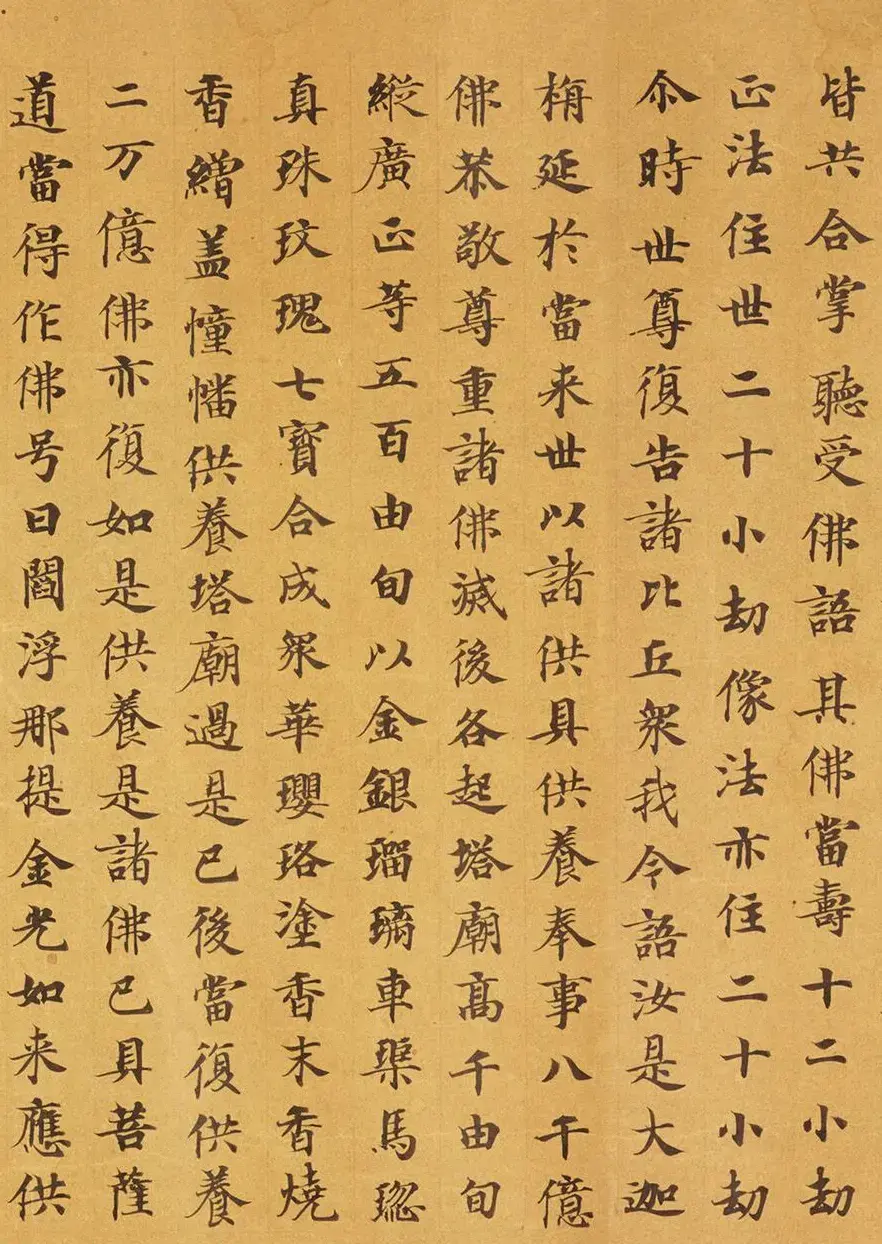 皆共合掌聽受佛語其佛當壽十二小劫
正法住世二十小劫像法亦住二十小劫
尒時世尊復告諸比丘衆我今語汝是大迦
栴延於當来世以諸供具供養奉事八千億
佛恭敬尊重諸佛滅後各起塔廟髙千由旬
縱廣正等五百由旬以金銀瑠璃車𤦲馬瑙
真珠玫瑰七寳合成衆華瓔珞塗香末香燒
香繒盖幢幡供養塔廟過是已後當復供養
二万億佛亦復如是供養是諸佛已具菩薩
道當得作佛号曰閻浮那提金光如来應供